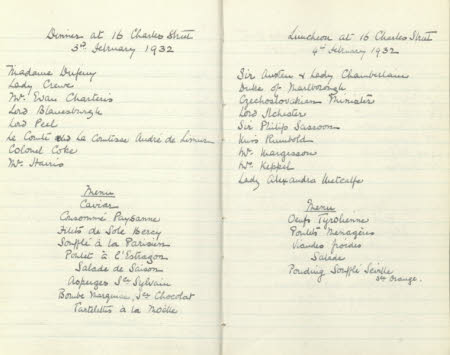 Dinner at 16 Charles Street
3rd February 1932
Madame Dufeny
Lady Crewe
Mr. Evan Charteris
Lord Blanesburgh
Lord Peel
Le Comte and La Comtesse André de Limur
Colonel Coke
Mr. Harris
Menu
Caviar
Consommé Paysanne
Filets de Sole Bercy
Soufflé à la Parisien
Poulet à l'Estragon
Salade de Saison
Asperges Sce Sylvain
Bombe Marquise Sce Chocolat
Tartelettes à la Moëlle
Luncheon at 16 Charles Street
4th February 1932
Sir Austen & Lady Chamberlain
Duke of Marlborough
Czechoslovakian Minister
Lord Ilchester
Sir Philip Sassoon
Miss Rumbold
Mr. Margesson
Mr. Keppel
Lady Alexandra Metcalfe
Menu
Oeufs Tyrolienne
Poulets Menagères
Viandes froides
Salade
Pouding Soufflé Seville
Sce Orange.